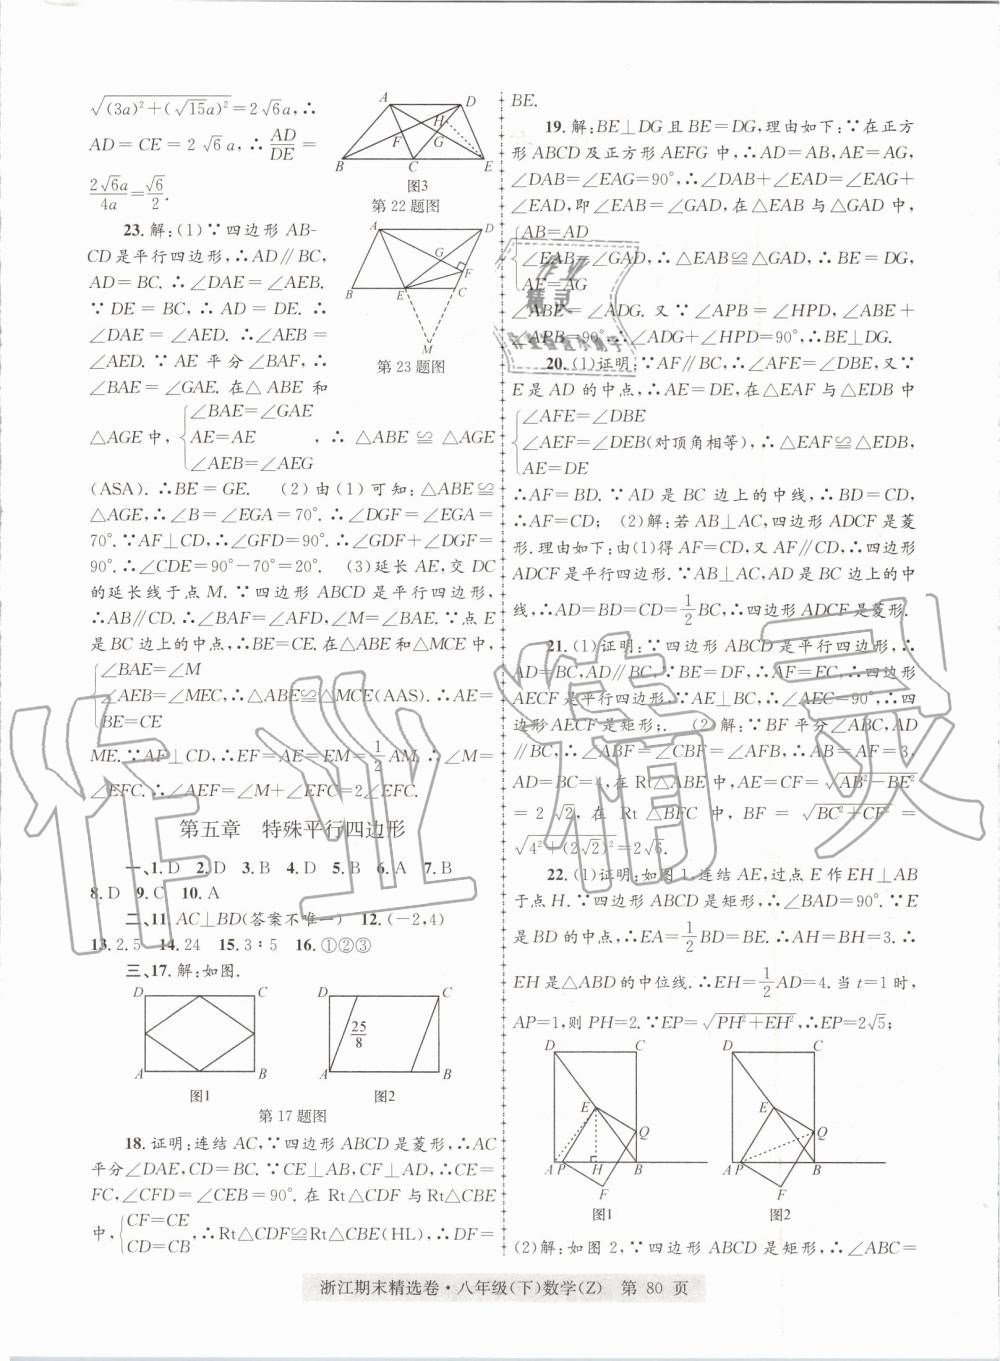 √(3a)²+(√15a)²=2√6a,∴
AD=CE=2√6a,∴AD/DE=
2√6a/4a=√6/2.
A D H F G B C E
图3
第22题图
23.解:(1)∵四边形AB-
CD是平行四边形,∴AD∥BC,
AD=BC.∴∠DAE=∠AEB.
∵DE=BC,∴AD=DE.∴
∠DAE=∠AED.∴∠AEB=
∠AED.∵AE平分∠BAF,∴
∠BAE=∠GAE.在△ABE和
A D G F B E C M
第23题图
△AGE中,{∠BAE=∠GAE
AE=AE
∠AEB=∠AEG
,∴△ABE≌△AGE
(ASA).∴BE=GE. (2)由(1)可知:△ABE≌
△AGE,∴∠B=∠EGA=70°.∴∠DGF=∠EGA=
70°.∵AF⊥CD,∴∠GFD=90°.∴∠GDF+∠DGF=
90°.∴∠CDE=90°-70°=20°. (3)延长AE,交DC
的延长线于点M.∵四边形ABCD是平行四边形,
∴AB∥CD.∴∠BAF=∠AFD,∠M=∠BAE.∵点E
是BC边上的中点,∴BE=CE.在△ABE和△MCE中,
{∠BAE=∠M
∠AEB=∠MEC,∴△ABE≌△MCE(AAS).∴AE=
BE=CE
ME.∵AF⊥CD,∴EF=AE=EM=1/2AM.∴∠M=
∠EFC.∴∠AEF=∠M+∠EFC=2∠EFC.
第五章 特殊平行四边形
一、1.D 2.D 3.B 4.D 5.B 6.A 7.B
8.D 9.C 10.A
二、11.AC⊥BD(答案不唯一) 12.(-2,4)
13.2.5 14.24 15.3∶5 16.①②③
三、17.解:如图.
D C A B
图1
D C 25/8 A B
图2
第17题图
18.证明:连结AC,∵四边形ABCD是菱形,∴AC
平分∠DAE,CD=BC.∵CE⊥AB,CF⊥AD,∴CE=
FC,∠CFD=∠CEB=90°.在Rt△CDF与Rt△CBE
中,{CF=CE
CD=CB
,∴Rt△CDF≌Rt△CBE(HL),∴DF=
BE.
19.解:BE⊥DG且BE=DG,理由如下:∵在正方
形ABCD及正方形AEFG中,∴AD=AB,AE=AG,
∠DAB=∠EAG=90°,∴∠DAB+∠EAD=∠EAG+
∠EAD,即∠EAB=∠GAD,在△EAB与△GAD中,
{AB=AD
∠EAB=∠GAD,∴△EAB≌△GAD,∴BE=DG,
AE=AG
∠ABE=∠ADG.又∵∠APB=∠HPD,∠ABE+
∠APB=90°,∴∠ADG+∠HPD=90°,∴BE⊥DG.
20.(1)证明:∵AF∥BC,∴∠AFE=∠DBE,又∵
E是AD的中点,∴AE=DE,在△EAF与△EDB中
{∠AFE=∠DBE
∠AEF=∠DEB(对顶角相等),∴△EAF≌△EDB,
AE=DE
∴AF=BD.∵AD是BC边上的中线,∴BD=CD,
∴AF=CD; (2)解:若AB⊥AC,四边形ADCF是菱
形.理由如下:由(1)得AF=CD,又AF∥CD,∴四边形
ADCF是平行四边形.∵AB⊥AC,AD是BC边上的中
线,∴AD=BD=CD=1/2BC,∴四边形ADCF是菱形.
21.(1)证明:∵四边形ABCD是平行四边形,∴
AD=BC,AD∥BC.∵BE=DF,∴AF=EC,∴四边形
AECF是平行四边形,∵AE⊥BC,∴∠AEC=90°,∴四
边形AECF是矩形; (2)解:∵BF平分∠ABC,AD
∥BC,∴∠ABF=∠CBF=∠AFB,∴AB=AF=3,
AD=BC=4,在Rt△ABE中,AE=CF=√AB²-BE²
=2√2,在Rt△BCF中,BF=√BC²+CF²=
√4²+(2√2)²=2√6.
22.(1)证明:如图1,连结AE,过点E作EH⊥AB
于点H.∵四边形ABCD是矩形,∴∠BAD=90°.∵E
是BD的中点,∴EA=1/2BD=BE.∴AH=BH=3.∴
EH是△ABD的中位线.∴EH=1/2AD=4.当t=1时,
AP=1,则PH=2.∵EP=√PH²+EH²,∴EP=2√5;
D C E Q A P H B F
图1
D C E Q A P B F
图2
(2)解:如图2,∵四边形ABCD是矩形,∴∠ABC=
浙江期末精选卷·八年级(下)数学(Z) 第80页
作业精灵
作业
精灵